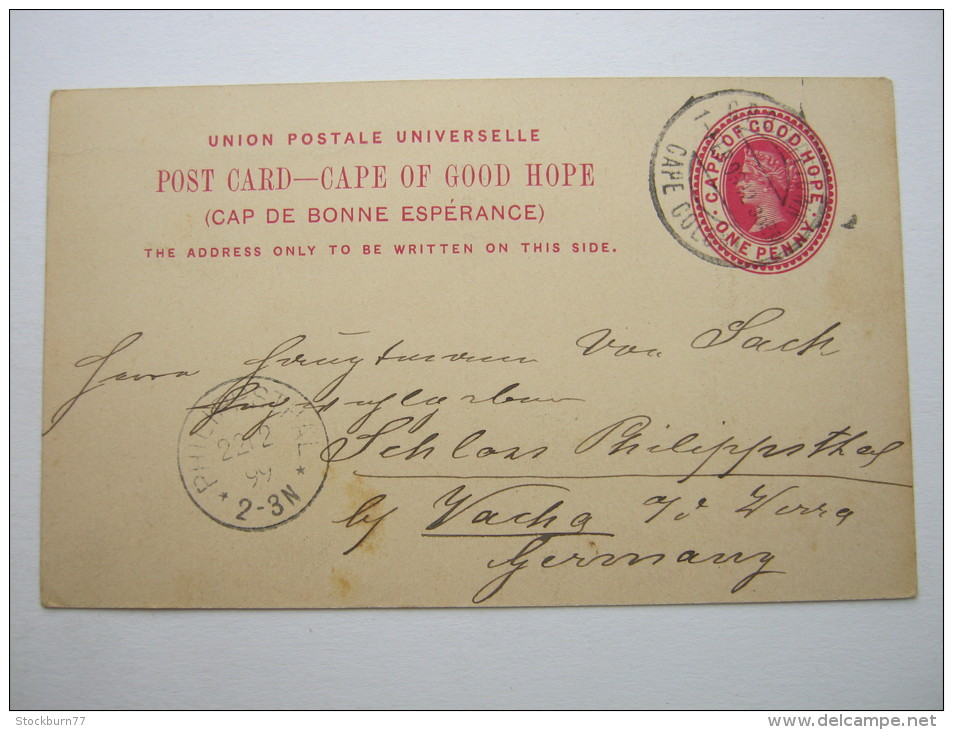 UNION POSTALE UNIVERSELLE
POST CARD—CAPE OF GOOD HOPE
(CAP DE BONNE ESPÉRANCE)
THE ADDRESS ONLY TO BE WRITTEN ON THIS SIDE.
CAPE OF GOOD HOPE
ONE PENNY
CAPE COL
Herrn Hauptmann von Sach
Schloss Philippsthal
by Vacha a/d Werra
Germany
PHILIPPSTHAL
22/2
99
* 2-3N *
Stockburn77
www.delcampe.net